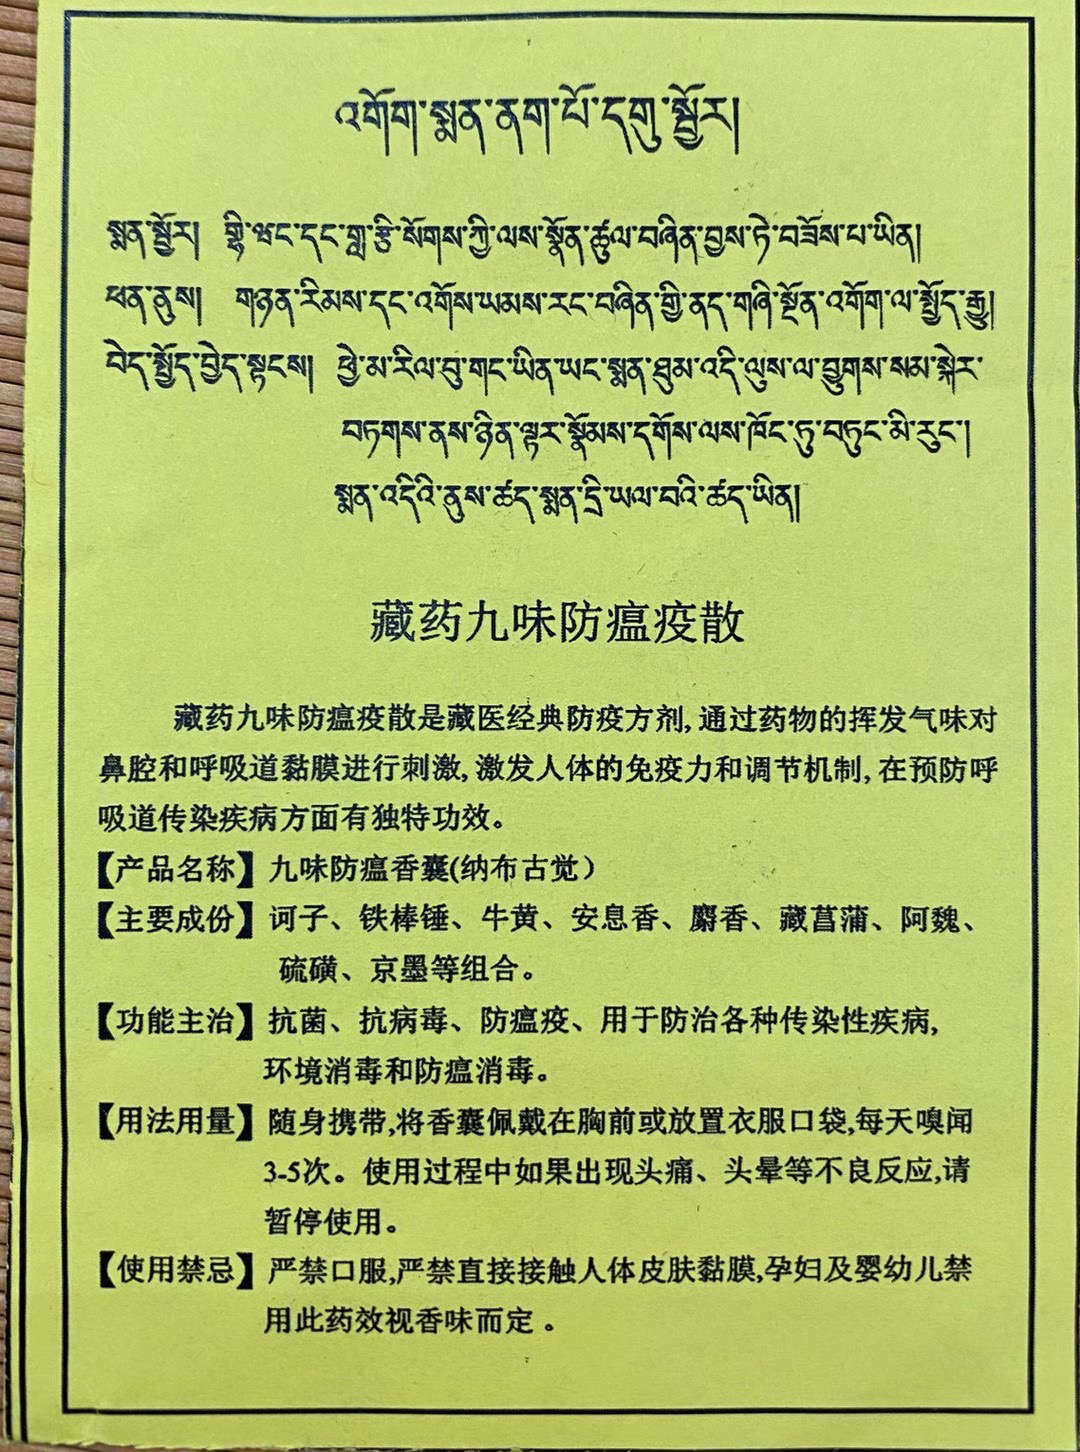 འགོག་སྨན་ནག་པོ་དགུ་སྦྱོར།
སྨན་སྦྱོར། གྷི་ཝང་དང་གླ་རྩི་སོགས་ཀྱི་ལས་སྣོན་ཚུལ་བཞིན་བྱས་ཏེ་བཟོས་པ་ཡིན།
ཕན་ནུས། གཉན་རིམས་དང་འགོས་ཡམས་རང་བཞིན་གྱི་ནད་གཞི་སྔོན་འགོག་ལ་སྤྱོད་རྒྱུ།
བེད་སྤྱོད་བྱེད་སྟངས། ཕྱེ་མ་རིལ་བུ་གང་ཡིན་ཡང་སྨན་ཐུམ་འདི་ལུས་ལ་བྱུགས་སམ་སྐེར་
བཏགས་ནས་ཉིན་ལྟར་སྣོམས་དགོས་ལས་ཁོང་ཏུ་བཏུང་མི་རུང་།
སྨན་འདིའི་ནུས་ཚད་སྨན་དྲི་ཡལ་བའི་ཚད་ཡིན།
藏药九味防瘟疫散
藏药九味防瘟疫散是藏医经典防疫方剂,通过药物的挥发气味对
鼻腔和呼吸道黏膜进行刺激,激发人体的免疫力和调节机制,在预防呼
吸道传染疾病方面有独特功效。
【产品名称】九味防瘟香囊(纳布古觉）
【主要成份】诃子、铁棒锤、牛黄、安息香、麝香、藏菖蒲、阿魏、
硫磺、京墨等组合。
【功能主治】抗菌、抗病毒、防瘟疫、用于防治各种传染性疾病,
环境消毒和防瘟消毒。
【用法用量】随身携带,将香囊佩戴在胸前或放置衣服口袋,每天嗅闻
3-5次。使用过程中如果出现头痛、头晕等不良反应,请
暂停使用。
【使用禁忌】严禁口服,严禁直接接触人体皮肤黏膜,孕妇及婴幼儿禁
用此药效视香味而定。